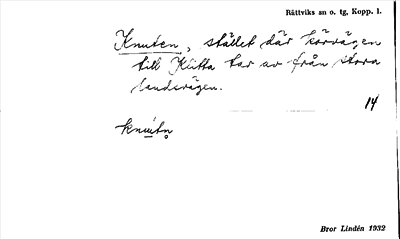 Rättviks sn o. tg, Kopp. l.
Knuten, stället där körvägen
till Klitta tar av från stora
landsvägen.
14
knutn̥
Bror Lindén 1932